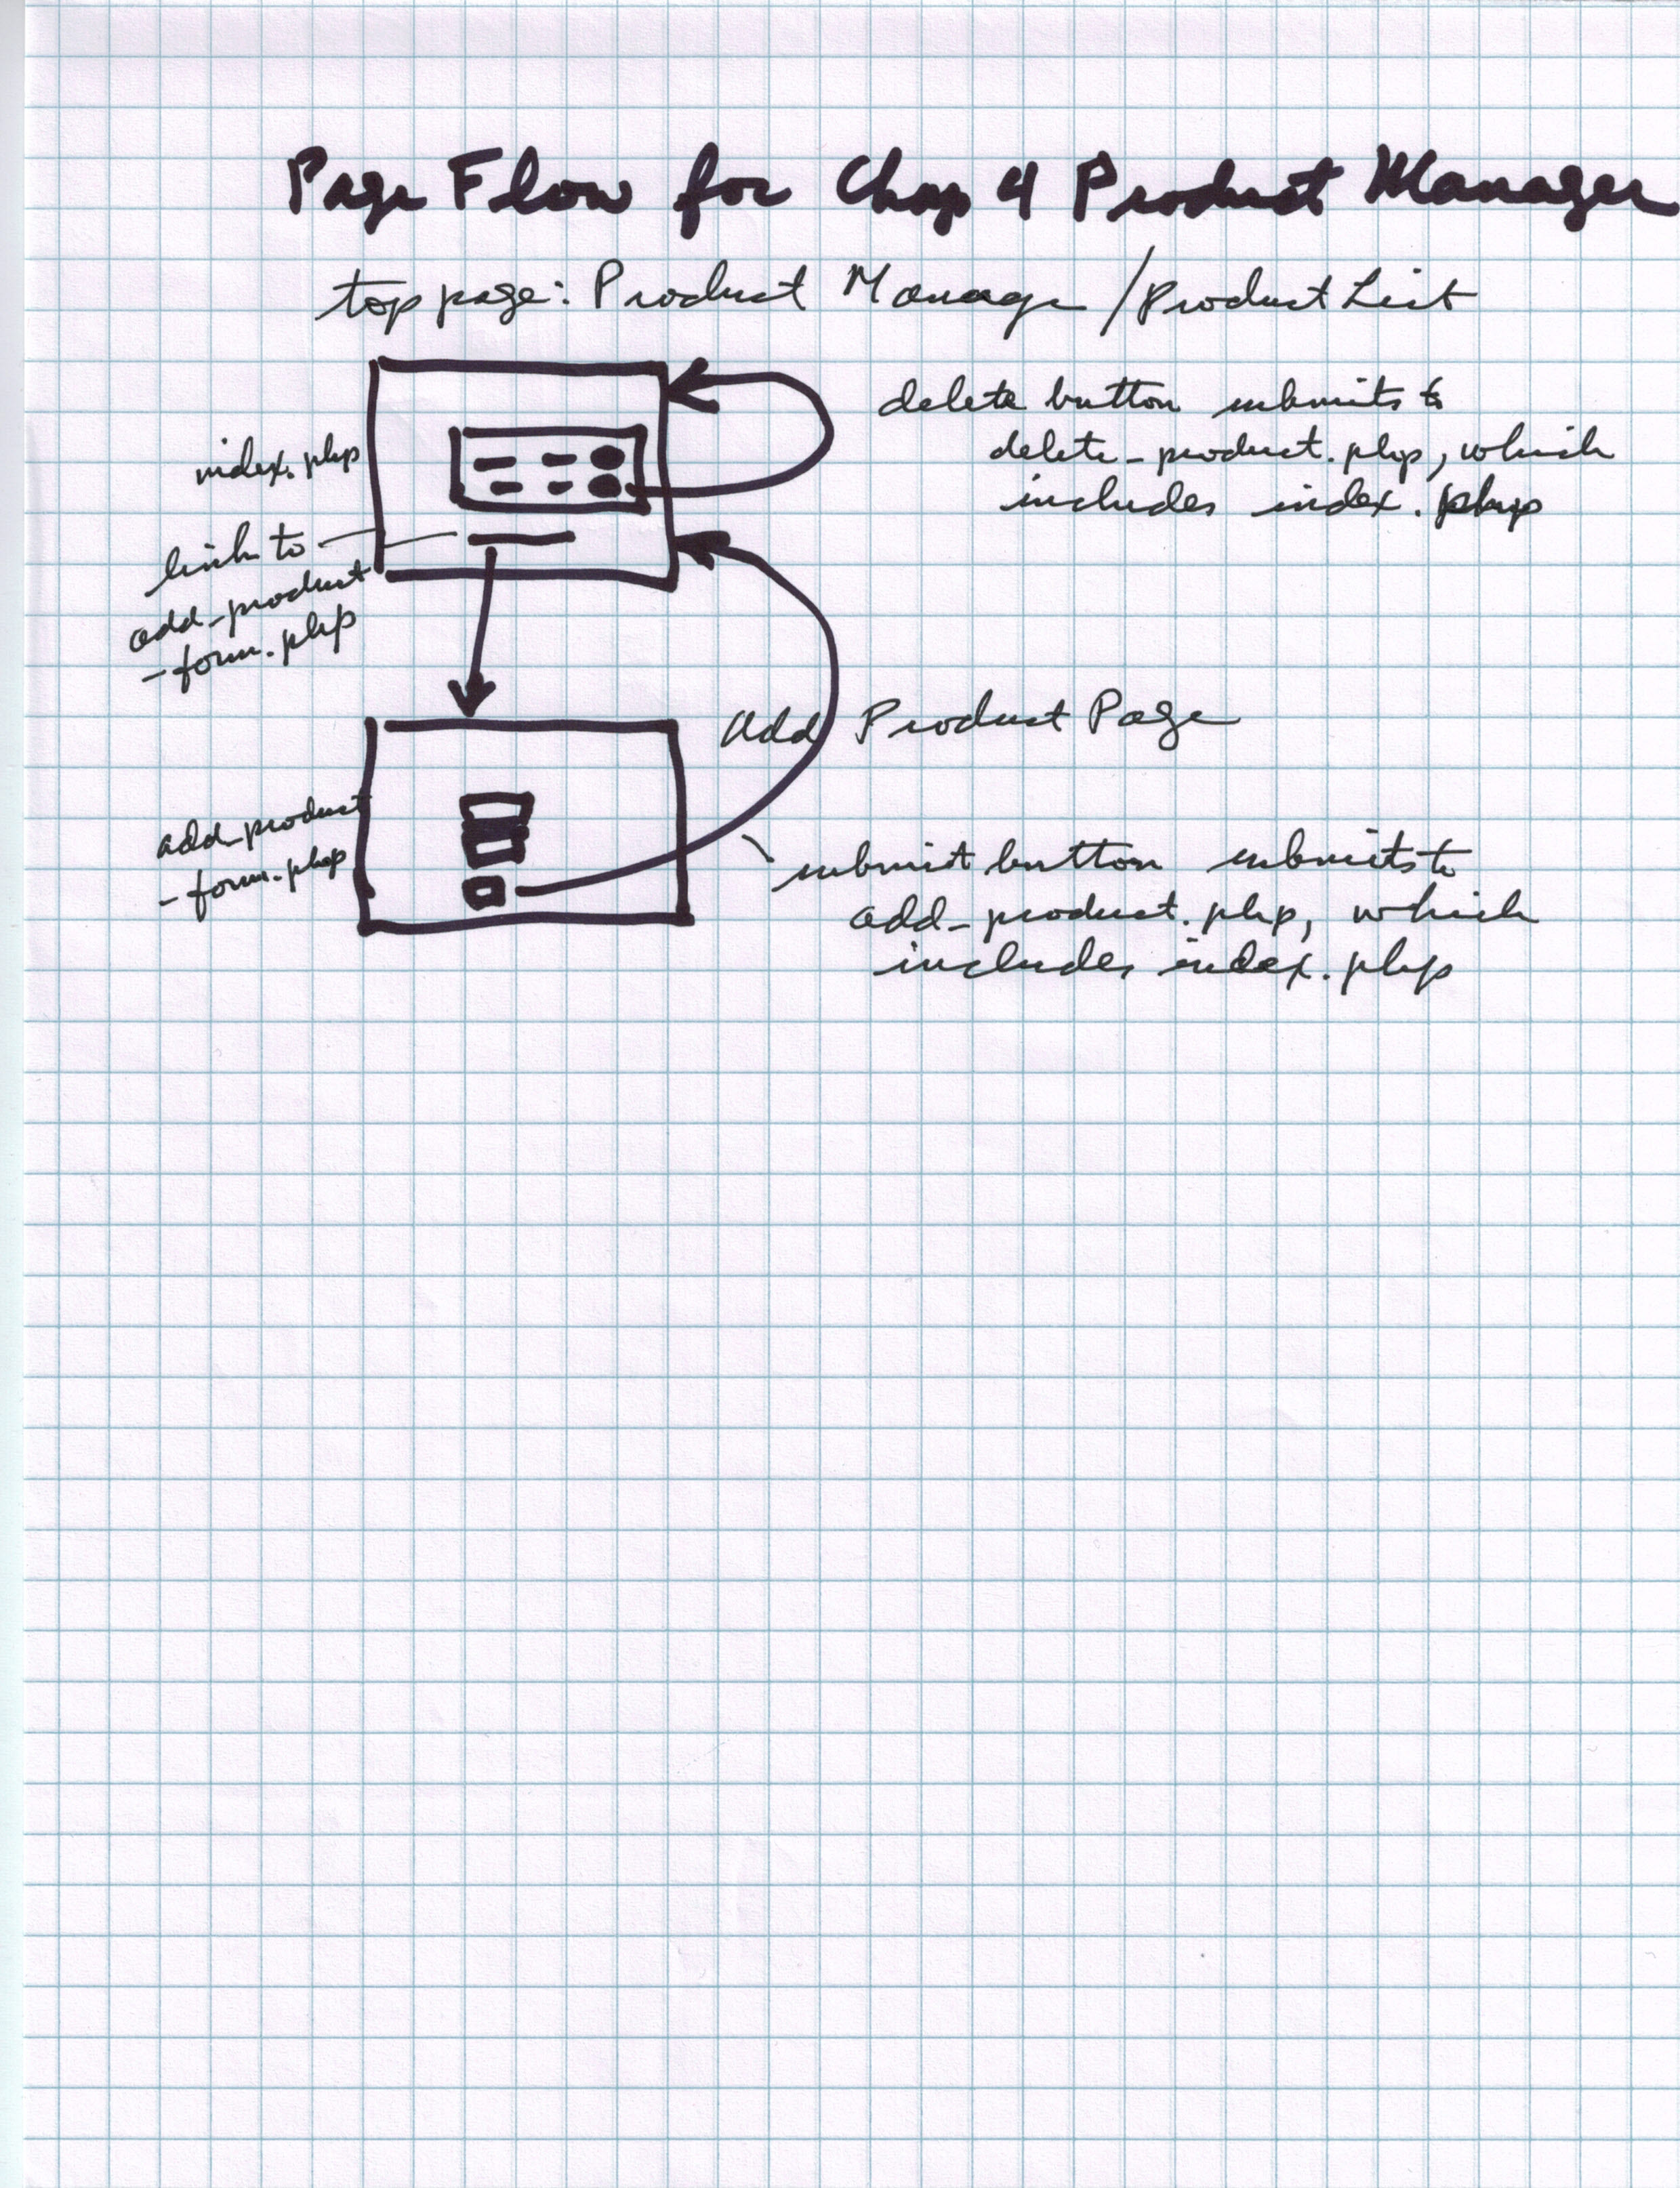 Page Flow for Chap 4 Product Manager
top page: Product Manage / Product List
delete button submits to
delete_product.php, which
includes index.php
index.php
link to
add_product
_form.php
Add Product Page
add_product
_form.php
submit button submits to
add_product.php, which
includes index.php